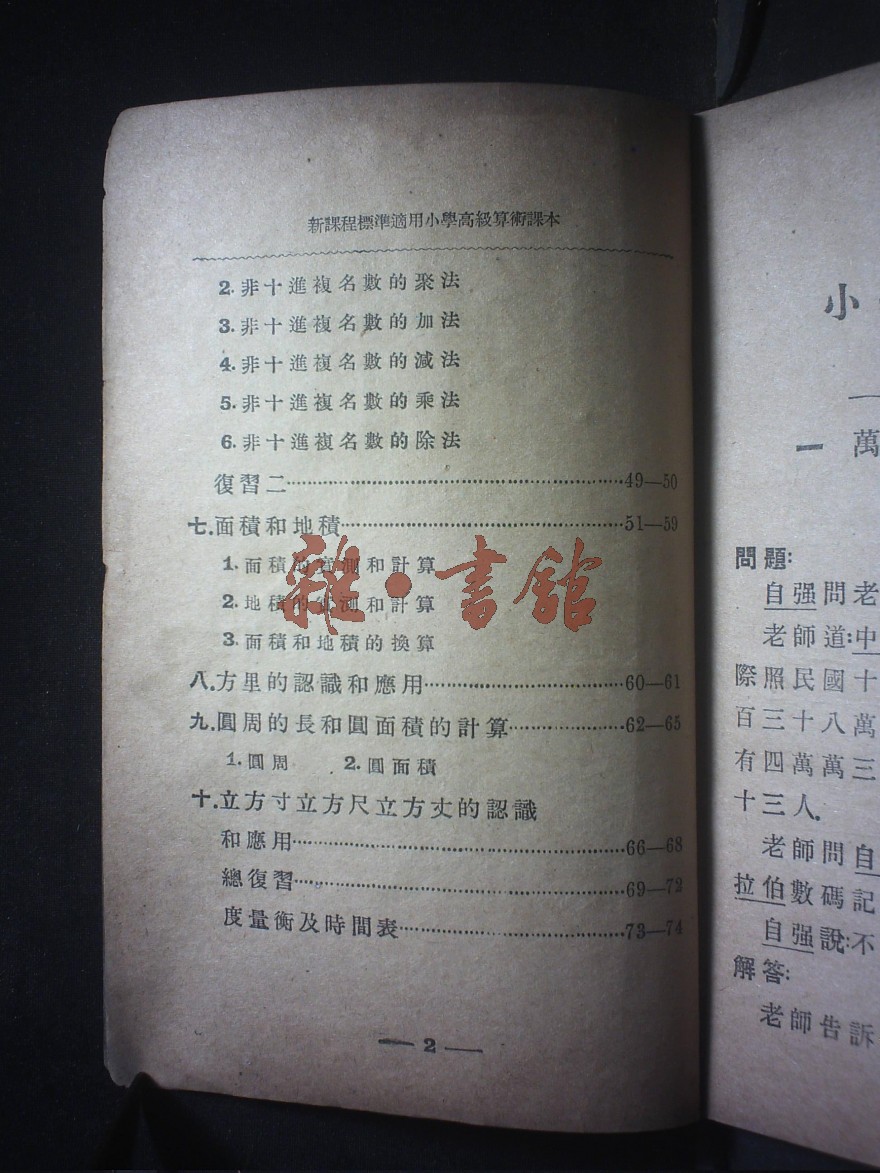 新課程標準適用小學高級算術課本
2.非十進複名數的聚法
3.非十進複名數的加法
4.非十進複名數的減法
5.非十進複名數的乘法
6.非十進複名數的除法
復習二……49—50
七.面積和地積……51—59
1.面積的實測和計算
2.地積的實測和計算
3.面積和地積的換算
八.方里的認識和應用……60—61
九.圓周的長和圓面積的計算……62—65
1.圓周 2.圓面積
十.立方寸立方尺立方丈的認識
和應用……66—68
總復習……69—72
度量衡及時間表……73—74
— 2 —
雜·書館
小
一 萬
問題:
自强問老
老師道:中
際照民國十
百三十八萬
有四萬萬三
十三人.
老師問自
拉伯數碼記
自强說:不
解答:
老師告訴